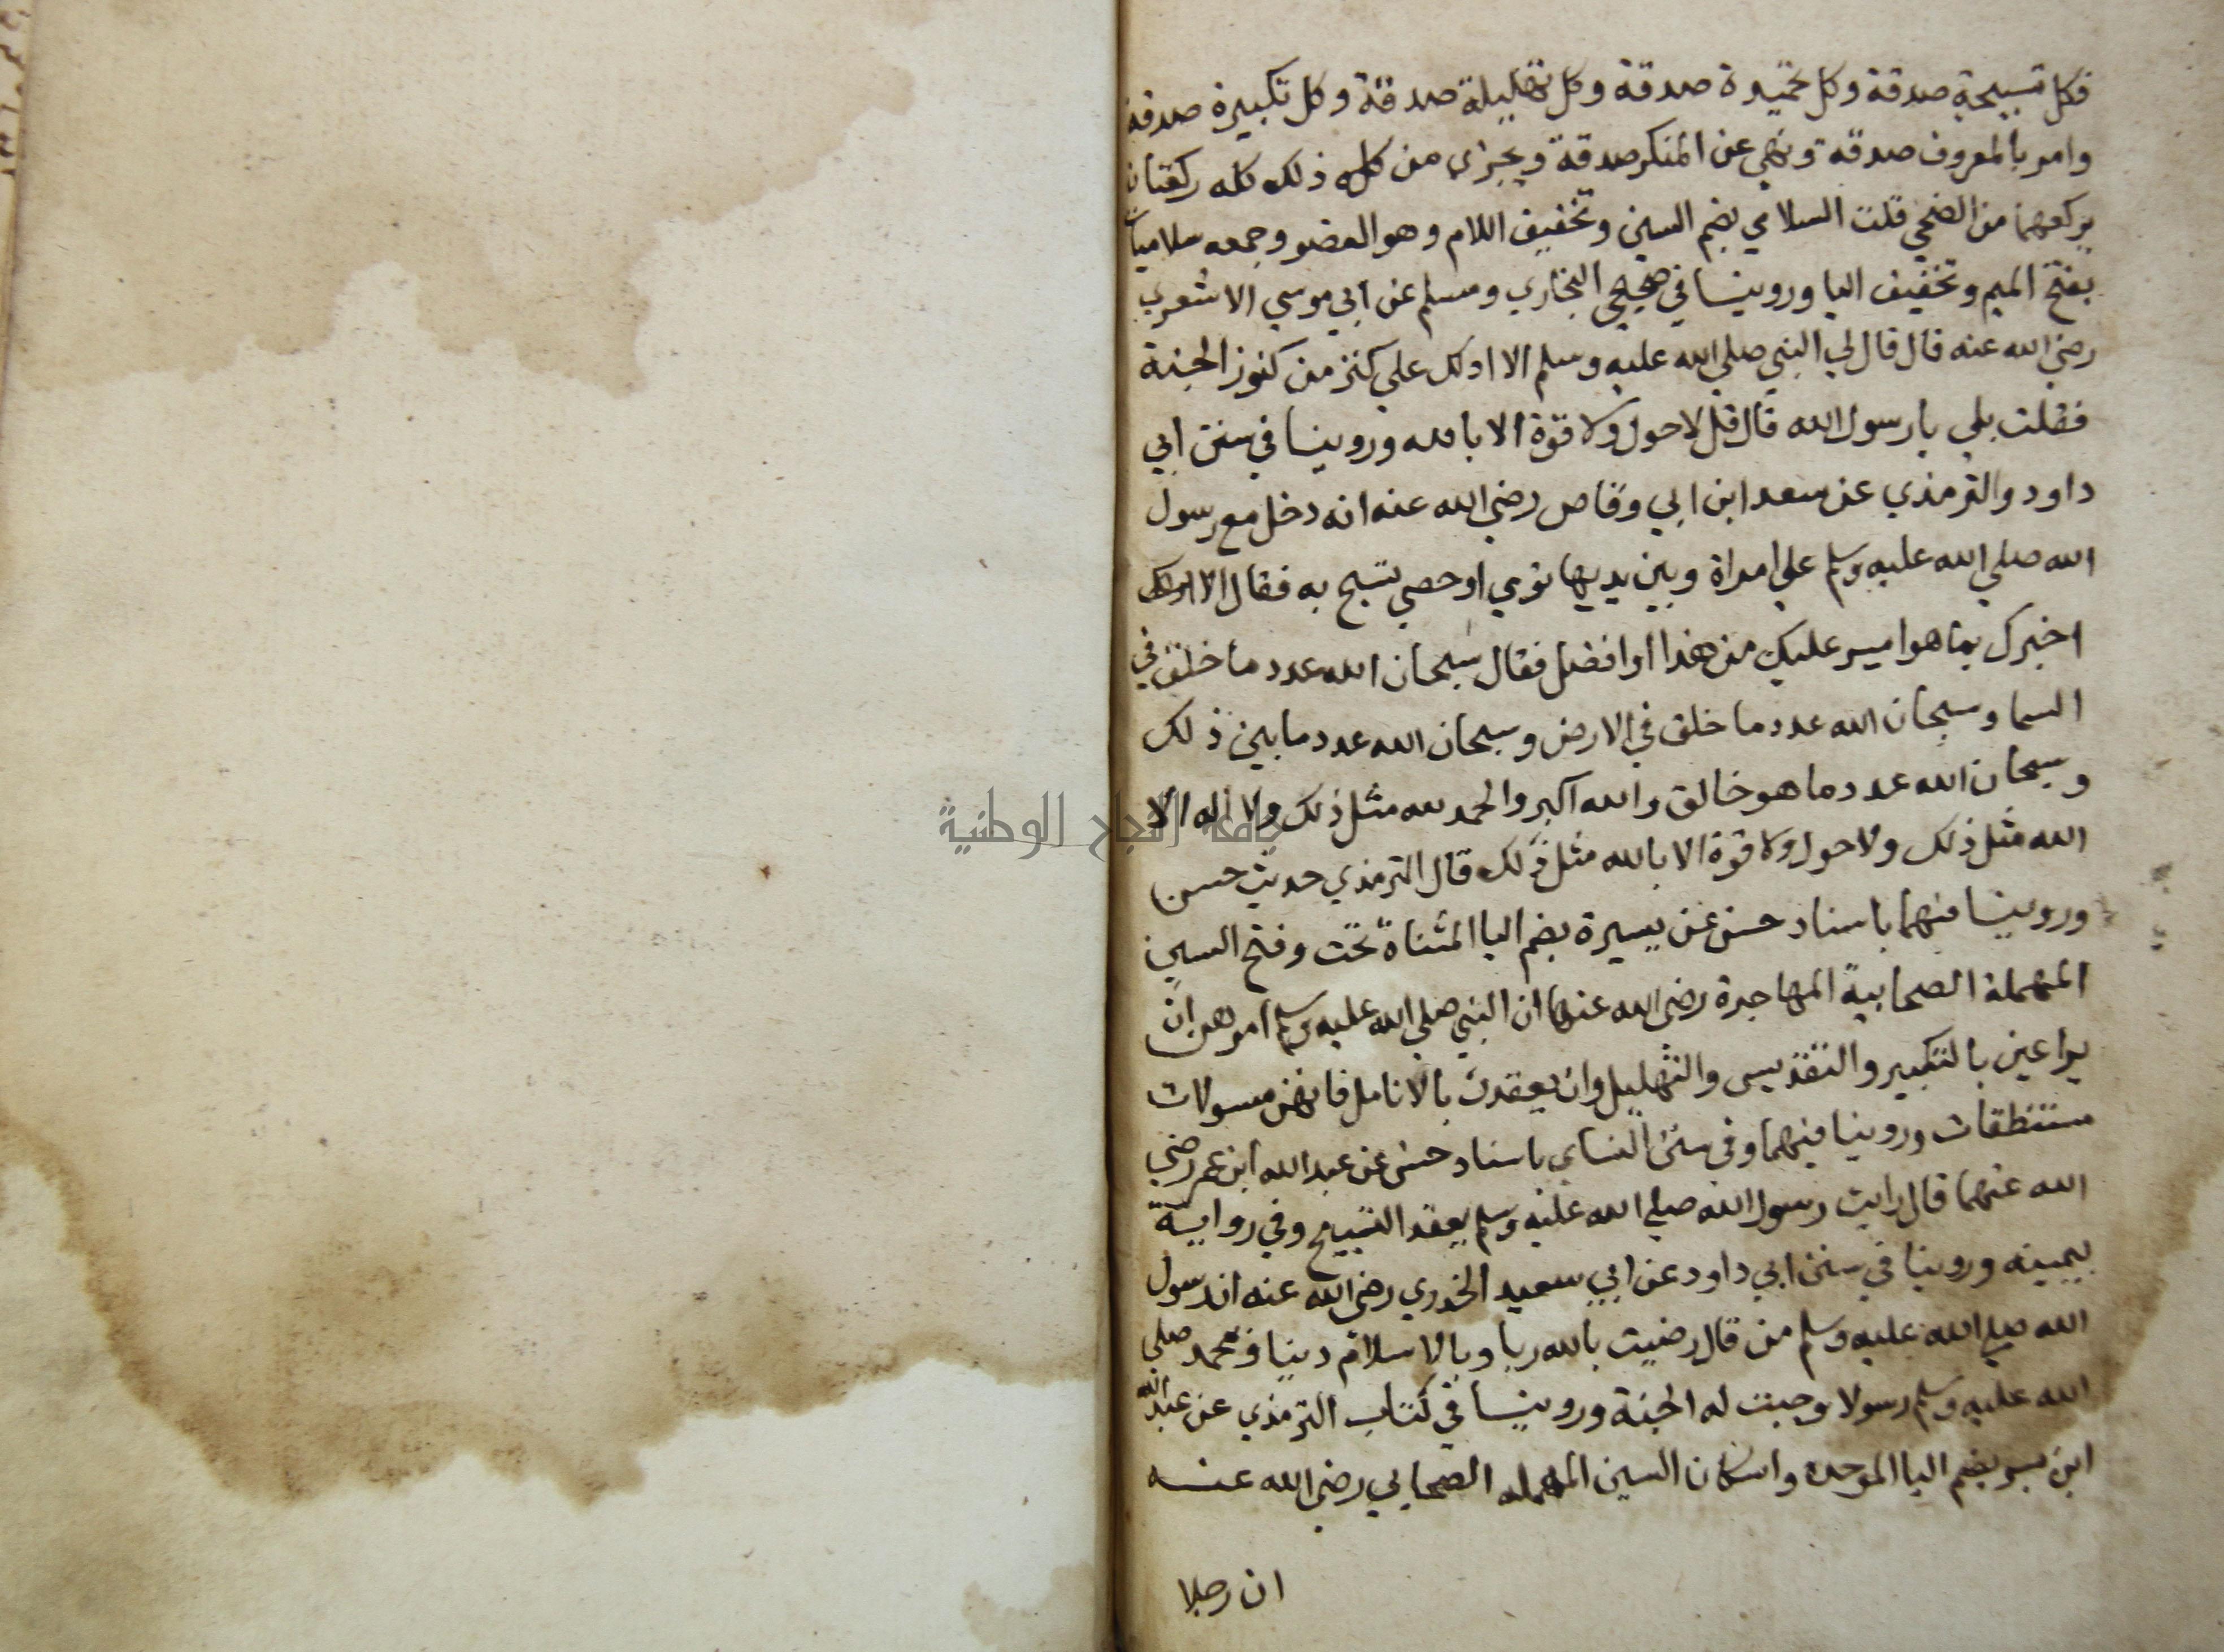 فكل تسبيحة صدقة وكل تحميدة صدقة وكل تهليلة صدقة وكل تكبيرة صدقة
وامر بالمعروف صدقة ونهي عن المنكر صدقة ويجزي من كل ذلك كله ركعتان
يركعهما من الضحي قلت السلامي بضم السين وتخفيف اللام وهو العضو وجمعه سلاميات
بفتح الميم وتخفيف اليا وروينا في صحيحي البخاري ومسلم عن ابي موسي الاشعري
رضي الله عنه قال قال لي النبي صلي الله عليه وسلم الا ادلك علي كنز من كنوز الجنة
فقلت بلي يا رسول الله قال قل لا حول ولا قوة الا بالله وروينا في سنن ابي
داود والترمذي عن سعد ابن ابي وقاص رضي الله عنه انه دخل مع رسول
الله صلي الله عليه وسلم علي امراة وبين يديها نوي او حصي تسبح به فقال الا
اخبرك بما هو اميسر عليك من هذا او افضل فقال سبحان الله عدد ما خلق في
السما وسبحان الله عدد ما خلق في الارض وسبحان الله عدد ما بين ذلك
وسبحان الله عدد ما هو خالق والله اكبر والحمد لله مثل ذلك ولا اله الا
الله مثل ذلك ولا حول ولا قوة الا بالله مثل ذلك قال الترمذي حديث حسن
وروينا فيهما باسناد حسن عن يسيرة بضم اليا المثناة تحت وفتح السين
المهملة الصحابية المهاجرة رضي الله عنها ان النبي صلي الله عليه وسلم امرهن ان
يراعين بالتكبير والتقديس والتهليل وان يعقدن بالانامل فانهن مسولات
مستنطقات وروينا فيهما وفي سنن النساي باسناد حسن عن عبد الله ابن عمر رضي
الله عنهما قال رايت رسول الله صلي الله عليه وسلم يعقد التسبيح وفي رواية
بيمينه وروينا في سنن ابي داود عن ابي سعيد الخدري رضي الله عنه ان رسول
الله صلي الله عليه وسلم من قال رضيت بالله ربا وبالاسلام دينا وبمحمد صلي
الله عليه وسلم رسولا وجبت له الجنة وروينا في كتاب الترمذي عن عبد الله
ابن بسر بضم البا الموحدة واسكان السين المهملة الصحابي رضي الله عنه
ان رجلا
جامعة النجاح الوطنية